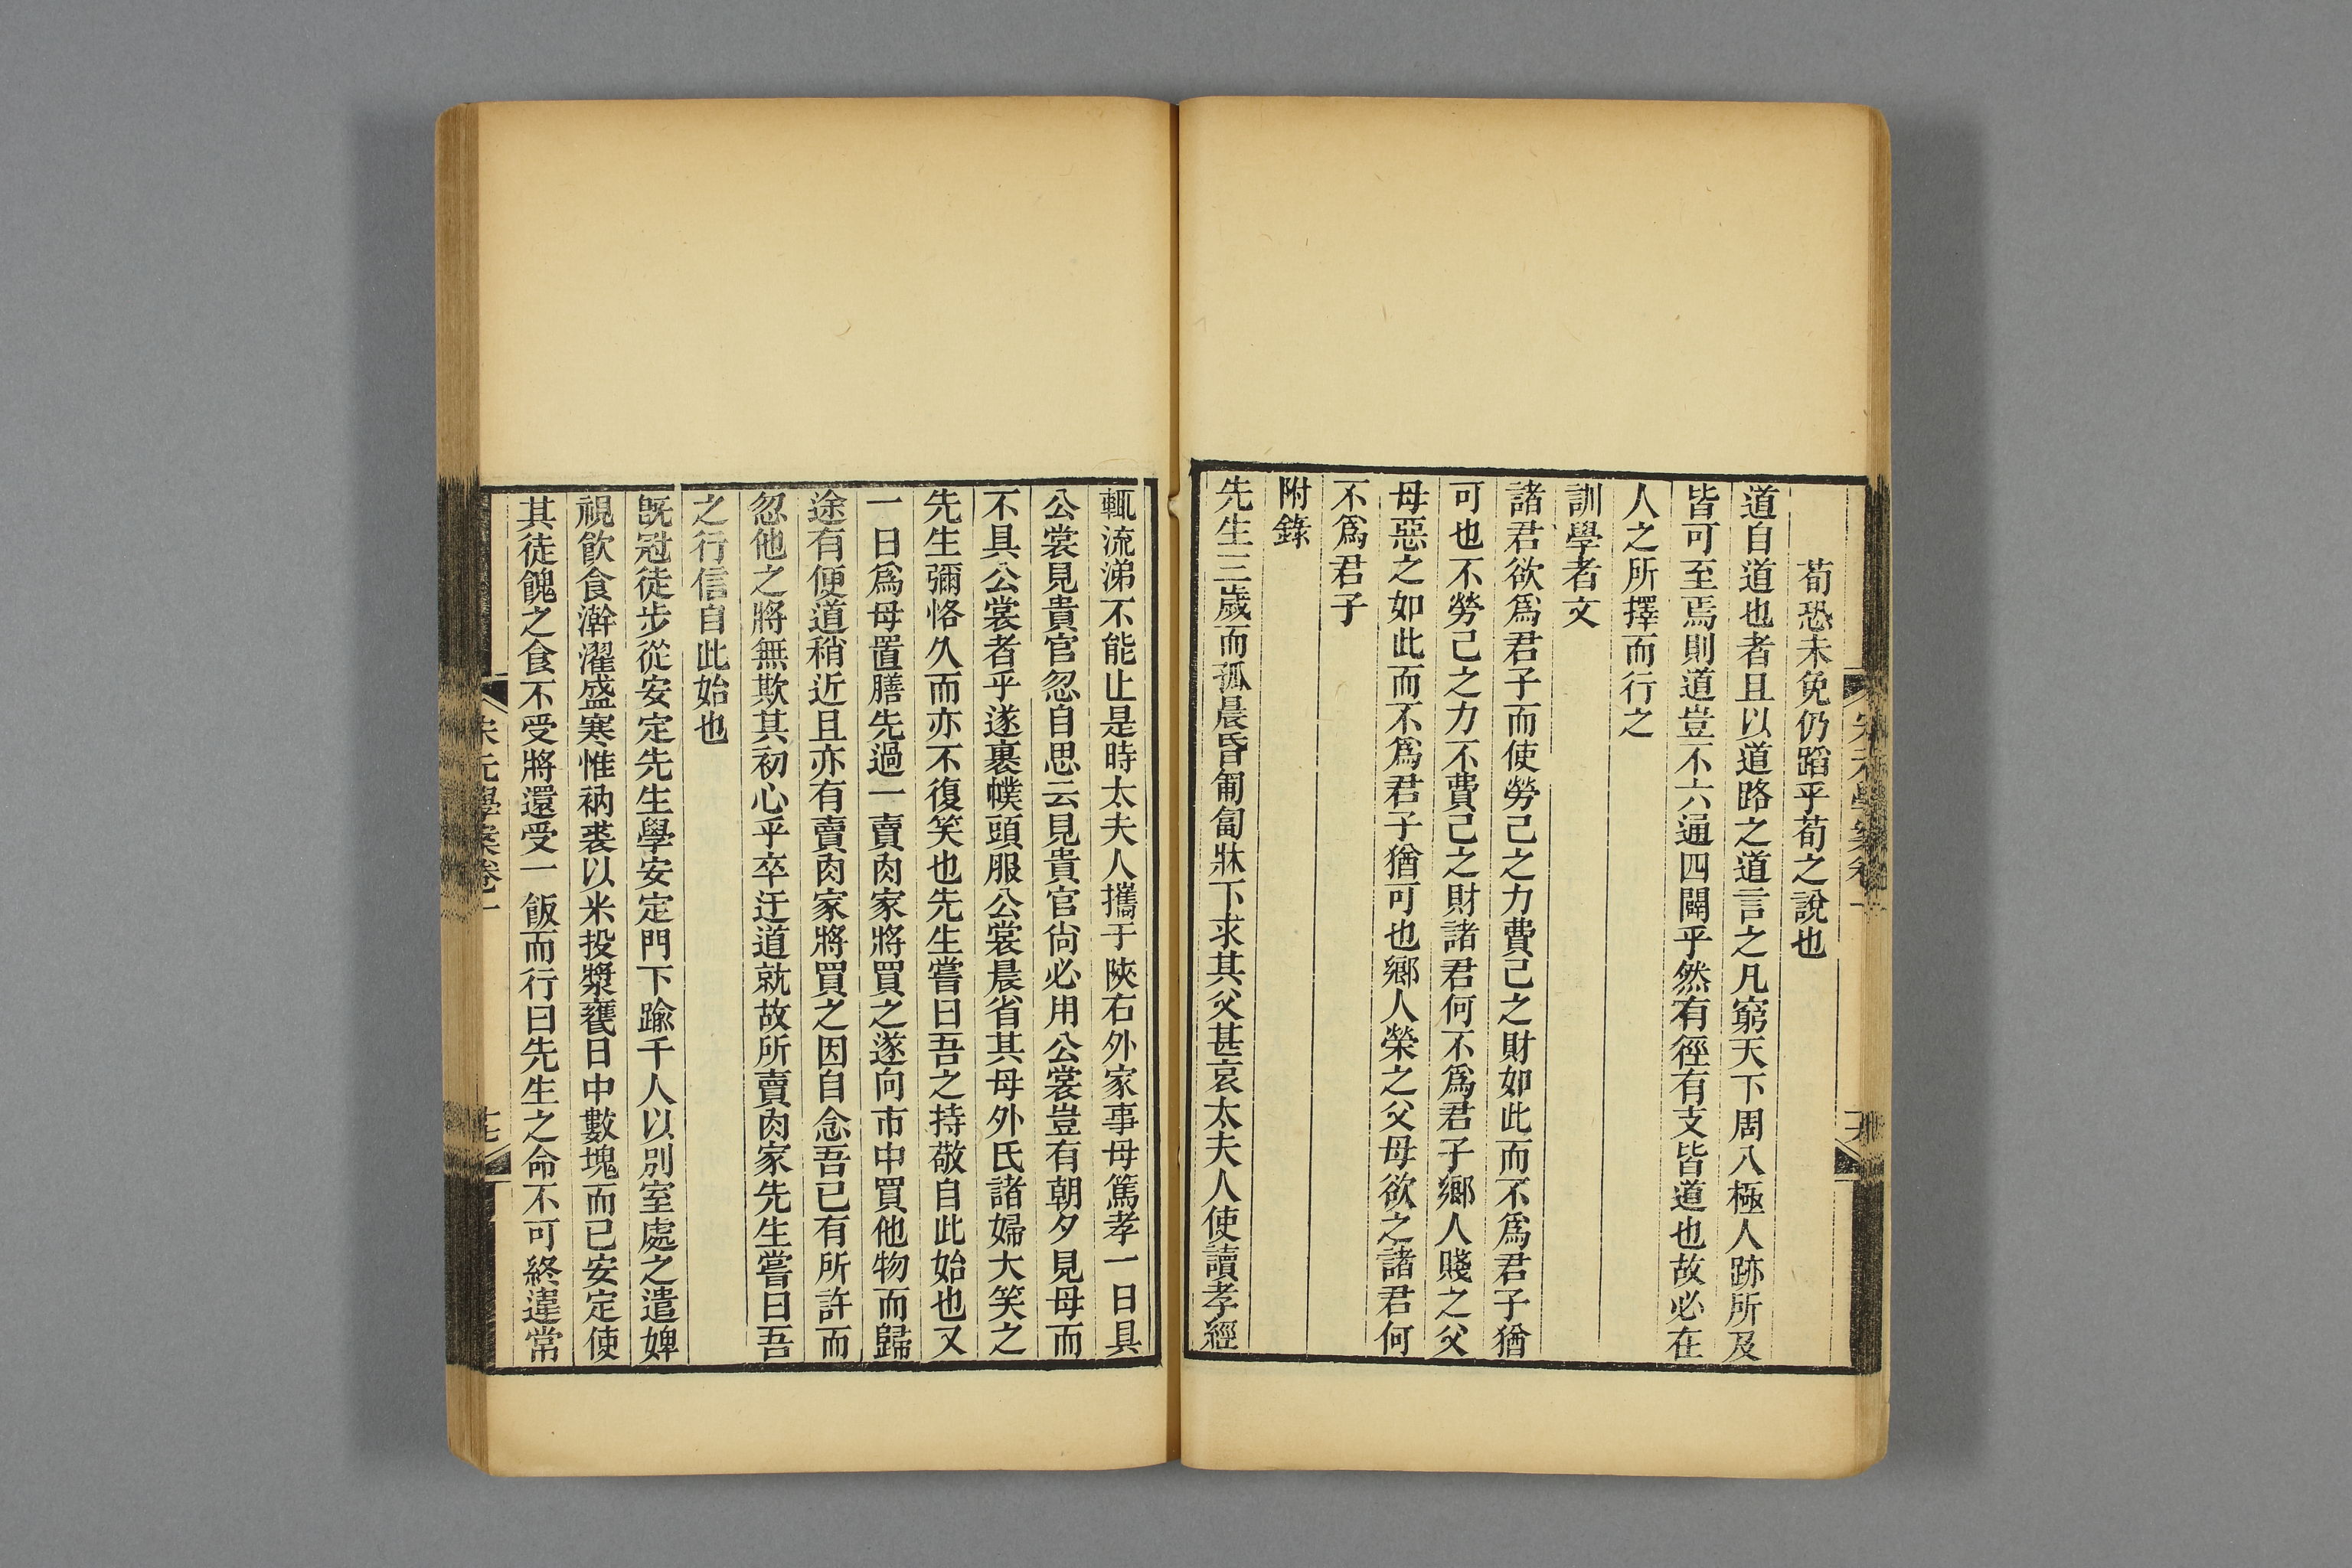 荀恐未免仍蹈乎荀之說也
道自道也者且以道路之道言之凡窮天下周八極人跡所及
皆可至焉則道豈不六通四闢乎然有徑有支皆道也故必在
人之所擇而行之
訓學者文
諸君欲爲君子而使勞己之力費己之財如此而不爲君子猶
可也不勞己之力不費己之財諸君何不爲君子鄉人賤之父
母惡之如此而不爲君子猶可也鄉人榮之父母欲之諸君何
不爲君子
附錄
先生三歲而孤晨昏匍匐牀下求其父甚哀太夫人使讀孝經
輒流涕不能止是時太夫人攜于陝右外家事母篤孝一日具
公裳見貴官忽自思云見貴官尙必用公裳豈有朝夕見母而
不具公裳者乎遂裹幞頭服公裳晨省其母外氏諸婦大笑之
先生彌恪久而亦不復笑也先生嘗曰吾之持敬自此始也又
一日爲母置膳先過一賣肉家將買之遂向市中買他物而歸
途有便道稍近且亦有賣肉家將買之因自念吾已有所許而
忽他之將無欺其初心乎卒迂道就故所賣肉家先生嘗曰吾
之行信自此始也
旣冠徒步從安定先生學安定門下踰千人以別室處之遣婢
視飮食澣濯盛寒惟衲裘以米投漿甕日中數塊而已安定使
其徒餽之食不受將還受一飯而行曰先生之命不可終違常
宋元學案卷一